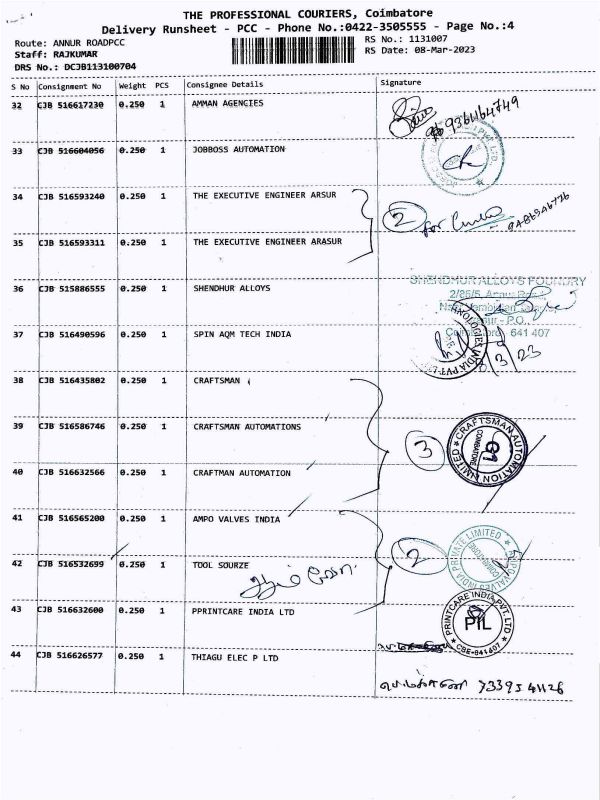 THE PROFESSIONAL COURIERS, Coimbatore
Delivery Runsheet - PCC - Phone No.:0422-3505555 - Page No.:4
Route: ANNUR ROADPCC
RS No.: 1131007
Staff: RAJKUMAR
RS Date: 08-Mar-2023
DRS No.: DCJB113100704
S No Consignment No Weight PCS Consignee Details Signature
32 CJB 516617230 0.250 1 AMMAN AGENCIES
33 CJB 516604056 0.250 1 JOBBOSS AUTOMATION
34 CJB 516593240 0.250 1 THE EXECUTIVE ENGINEER ARSUR
2 for
35 CJB 516593311 0.250 1 THE EXECUTIVE ENGINEER ARASUR
36 CJB 515886555 0.250 1 SHENDHUR ALLOYS
SHENDHUR ALLOYS FOUNDRY
641 407
37 CJB 516490596 0.250 1 SPIN AQM TECH INDIA
38 CJB 516435802 0.250 1 CRAFTSMAN
39 CJB 516586746 0.250 1 CRAFTSMAN AUTOMATIONS
3
CRAFTSMAN AUTOMATION LIMITED
COIMBATORE
G1
40 CJB 516632566 0.250 1 CRAFTMAN AUTOMATION
41 CJB 516565200 0.250 1 AMPO VALVES INDIA
2
AMPO VALVES INDIA PRIVATE LIMITED
42 CJB 516532699 0.250 1 TOOL SOURZE
43 CJB 516632600 0.250 1 PPRINTCARE INDIA LTD
PRINTCARE INDIA PVT. LTD
PIL
CBE-641407
44 CJB 516626577 0.250 1 THIAGU ELEC P LTD
7339541126